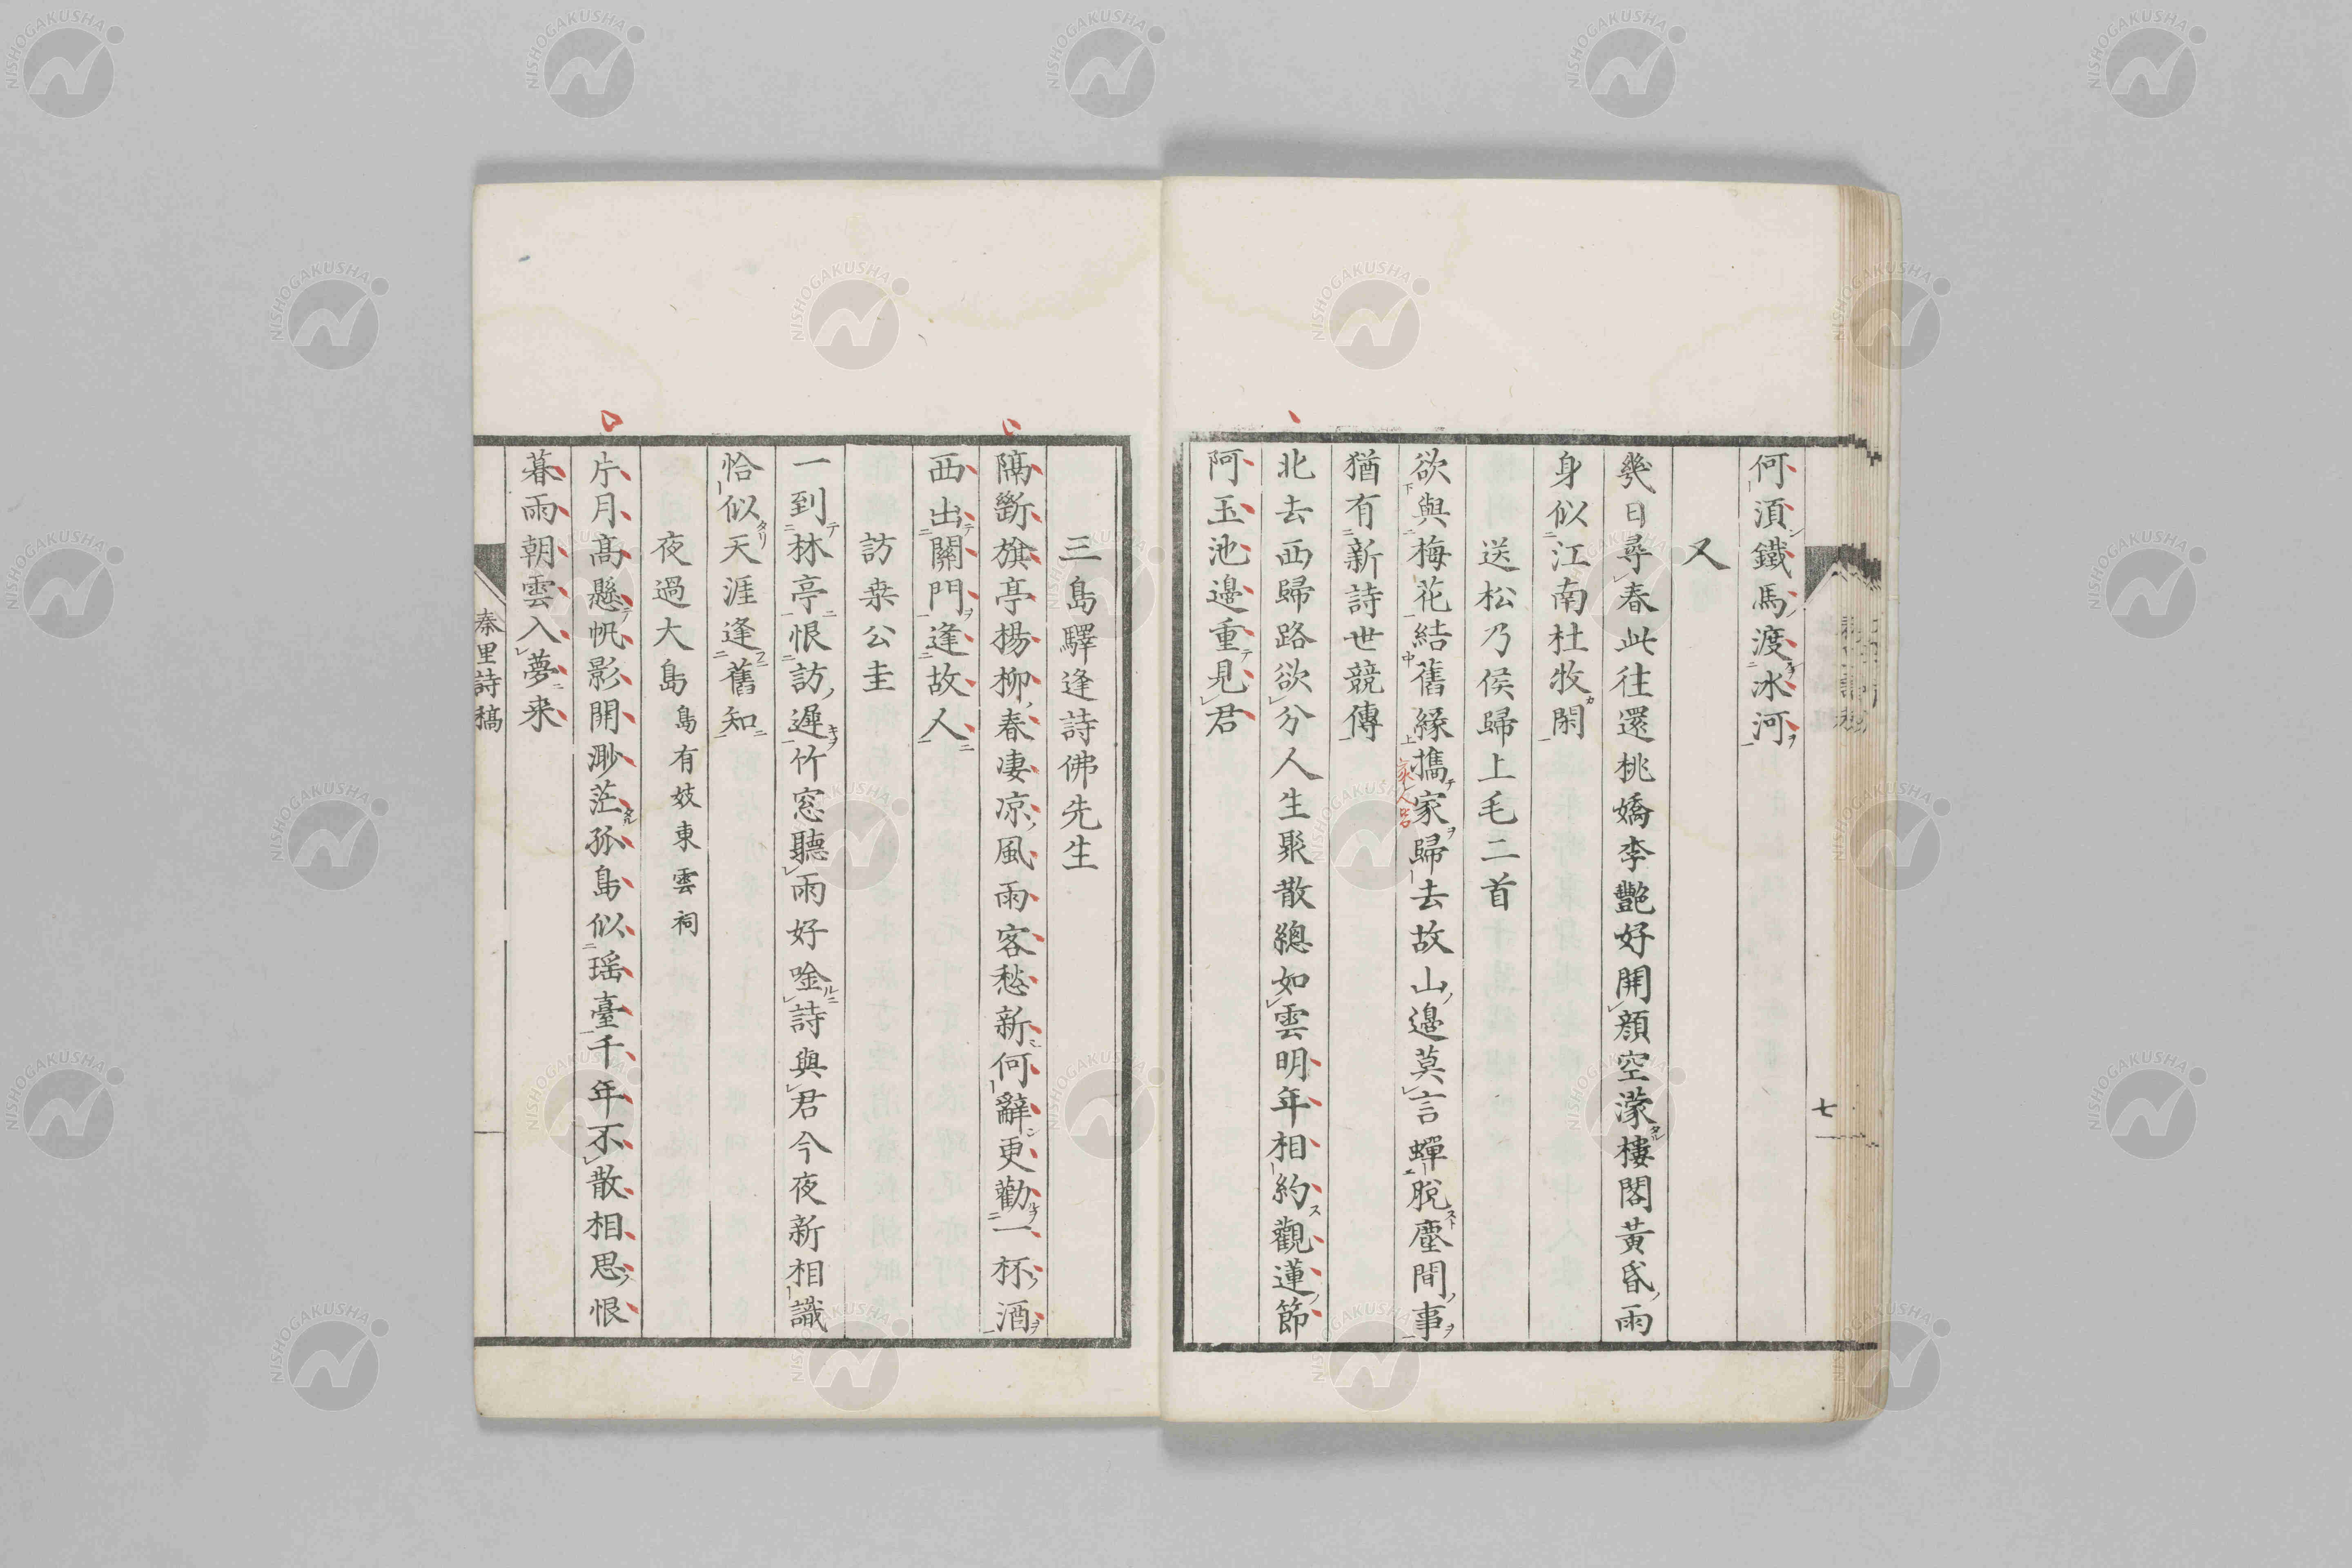 何湏鐵馬渡冰河
又
幾日尋春此往還桃嬌李艷好開顔空濛樓閣黃昏雨
身似江南杜牧閑
送松乃侯歸上毛二首
欲與梅花結舊緣攜家歸去故山邉莫言蟬脫塵間事
猶有新詩世競傳
北去西歸路欲分人生聚散總如雲明年相約觀蓮節
阿玉池邉重見君
七
三島驛逢詩佛先生
隔斷旗亭楊柳春凄凉風雨客愁新何辭更勸一杯酒
西出關門逢故人
訪桒公圭
一到林亭恨訪遲竹窓聽雨好唫詩與君今夜新相識
恰似天涯逢舊知
夜過大島 島有妓東雲祠
片月高懸帆影開渺茫孤島似瑶臺千年不散相思恨
暮雨朝雲入夢来
秦里詩稿
NISHOGAKUSHA